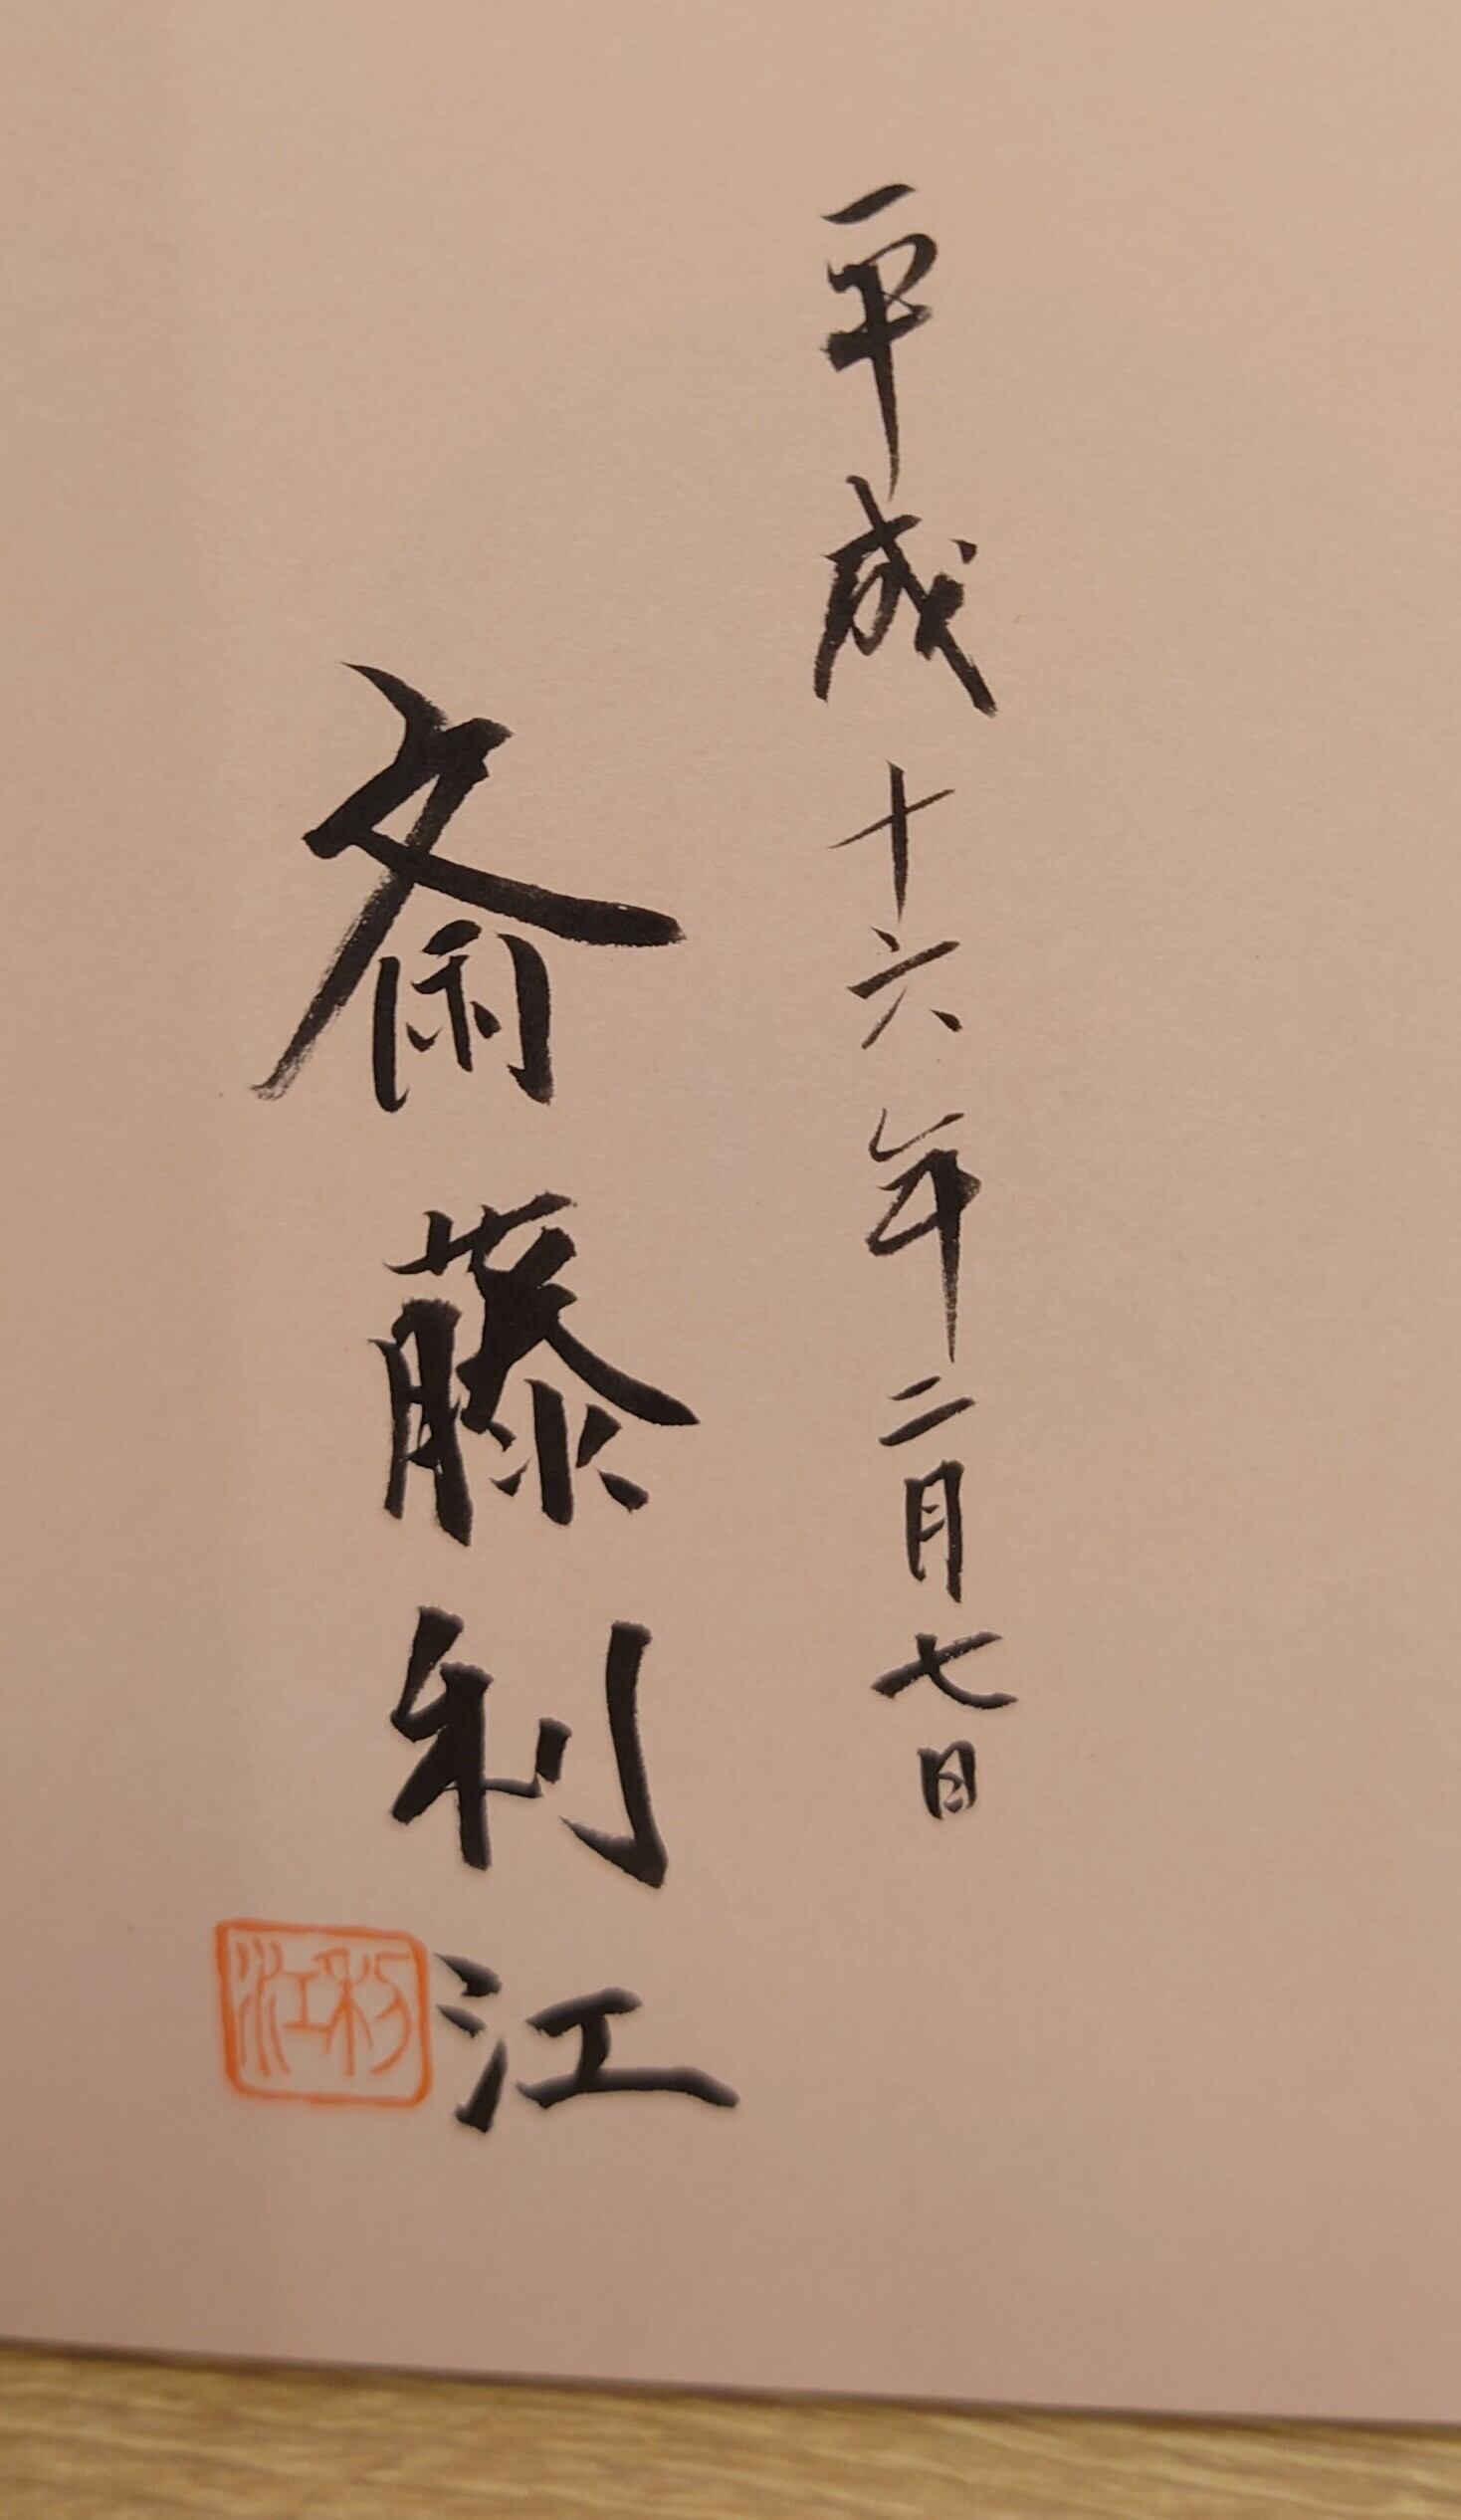 平成十六年二月七日
斎藤利江
利江